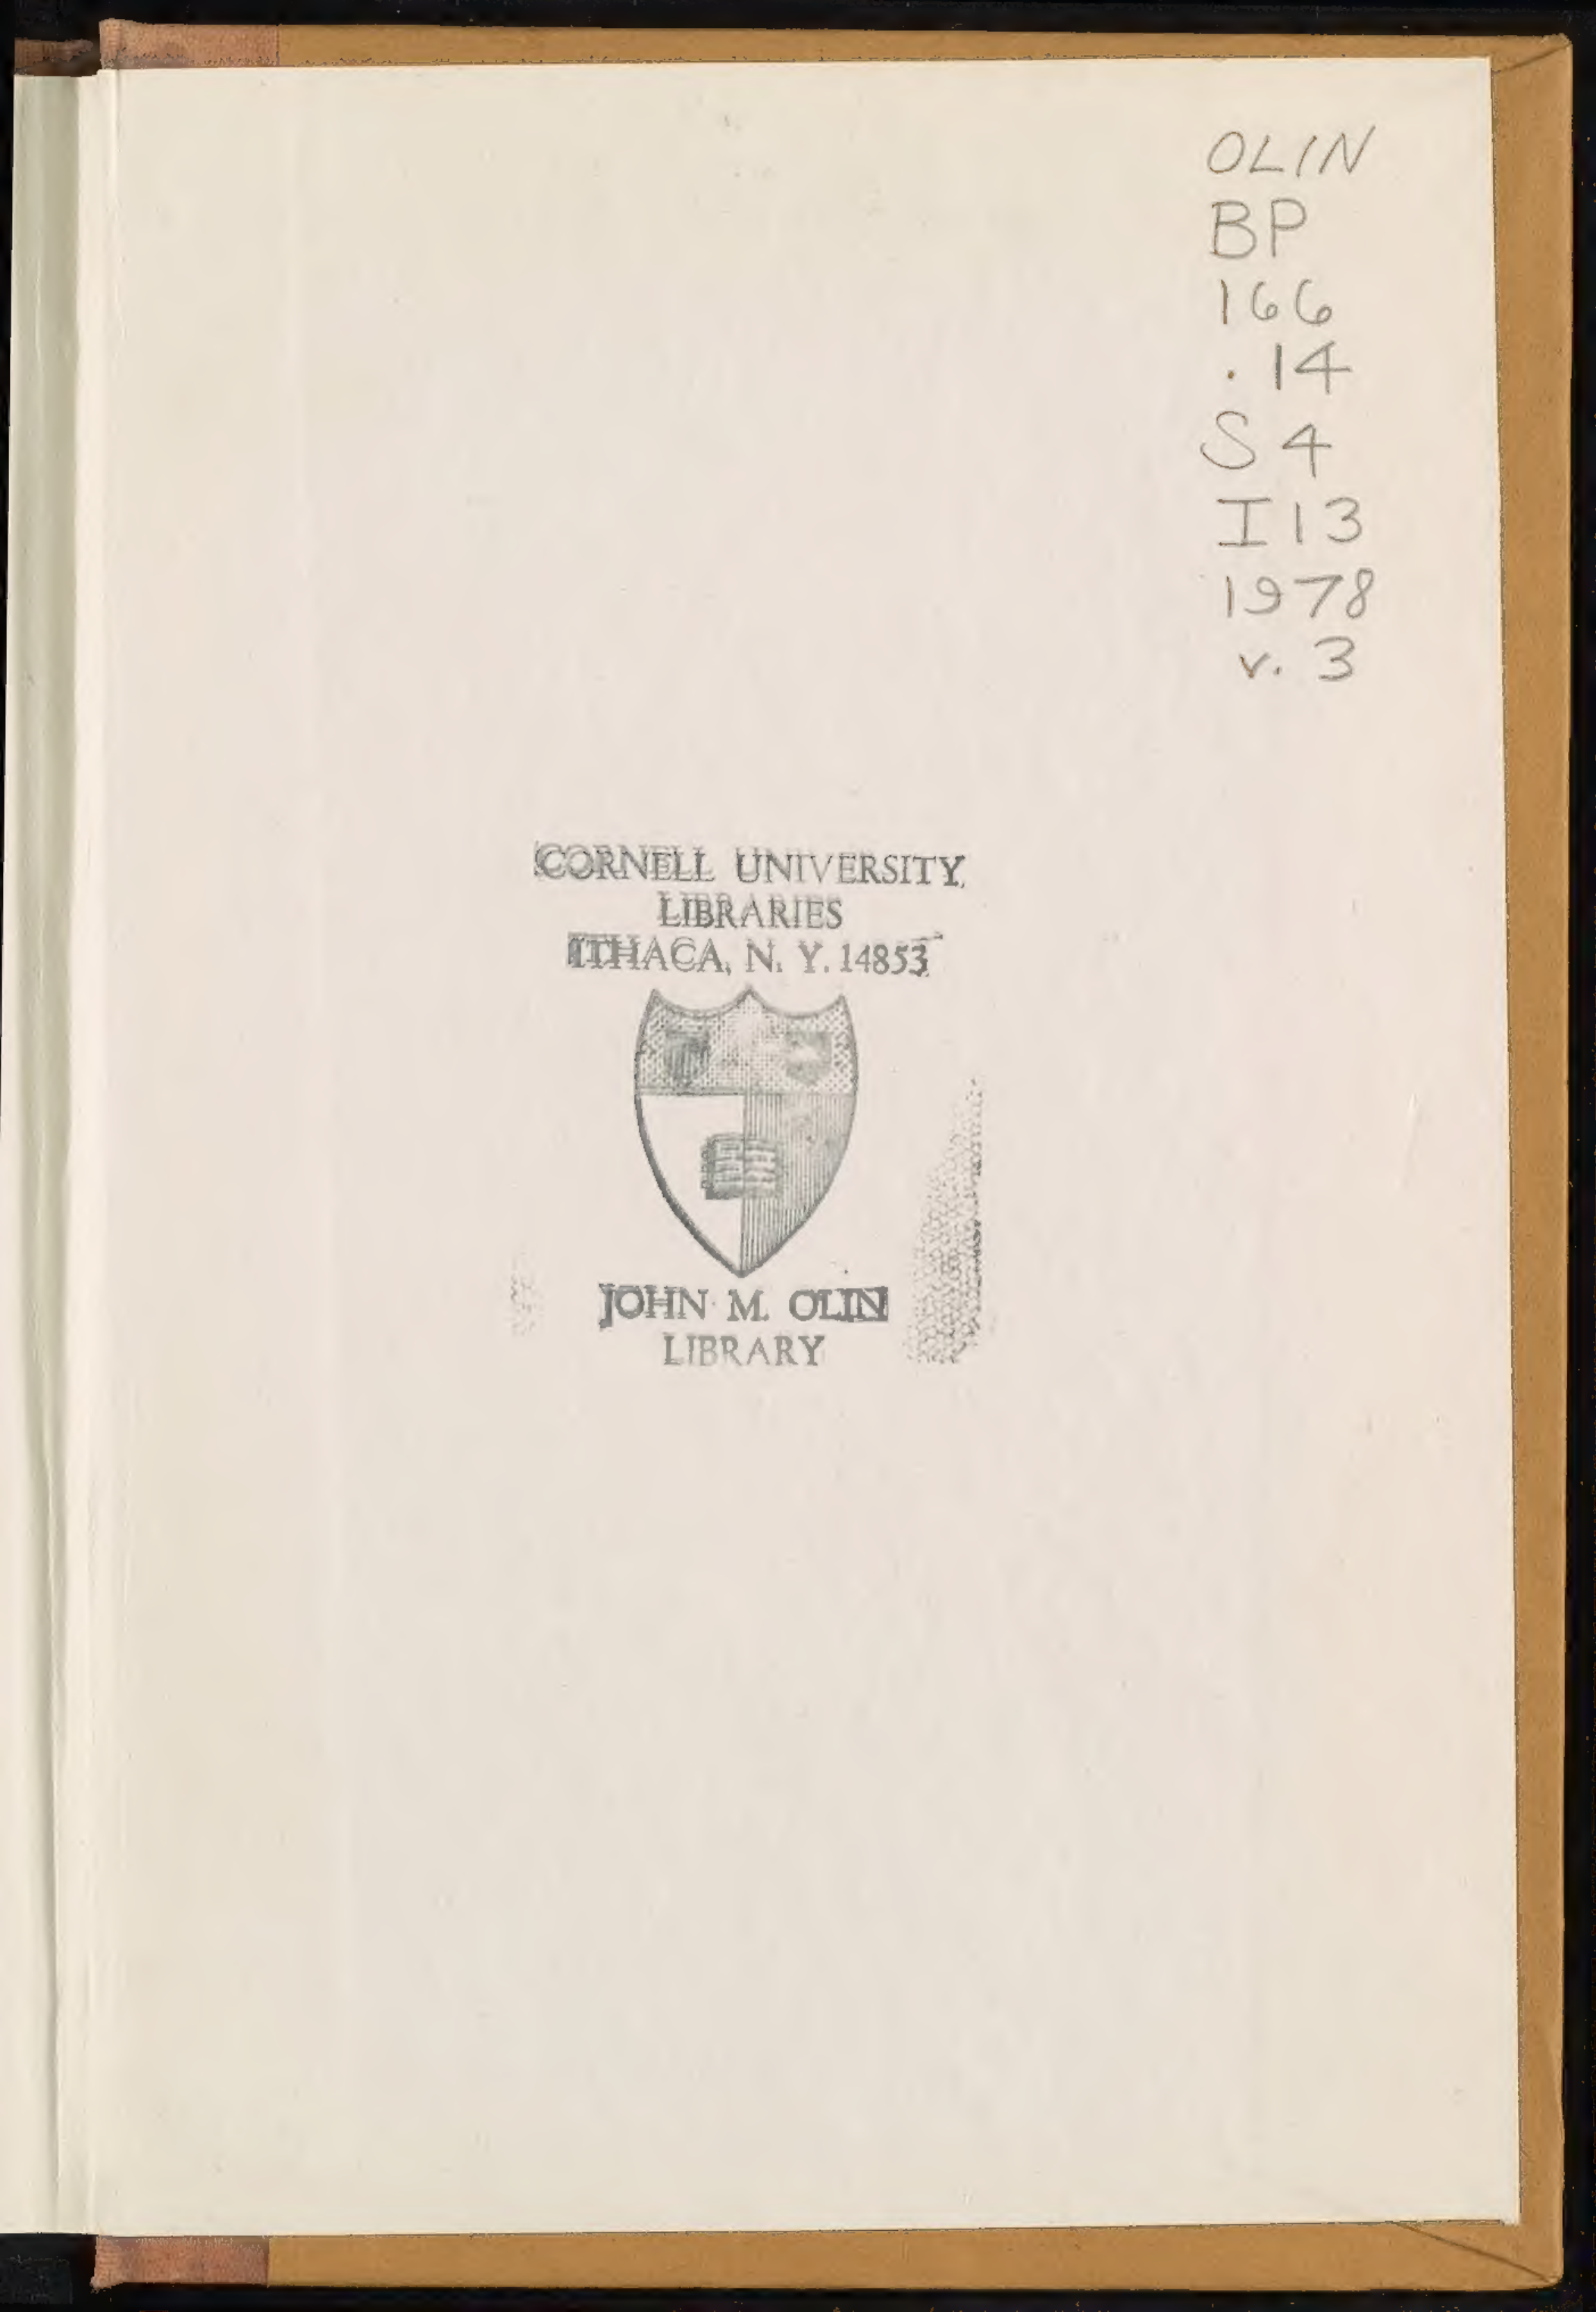 OLIN
BP
166
.14
S4
I13
1978
v. 3
CORNELL UNIVERSITY
LIBRARIES
ITHACA, N. Y. 14853
JOHN M. OLIN
LIBRARY